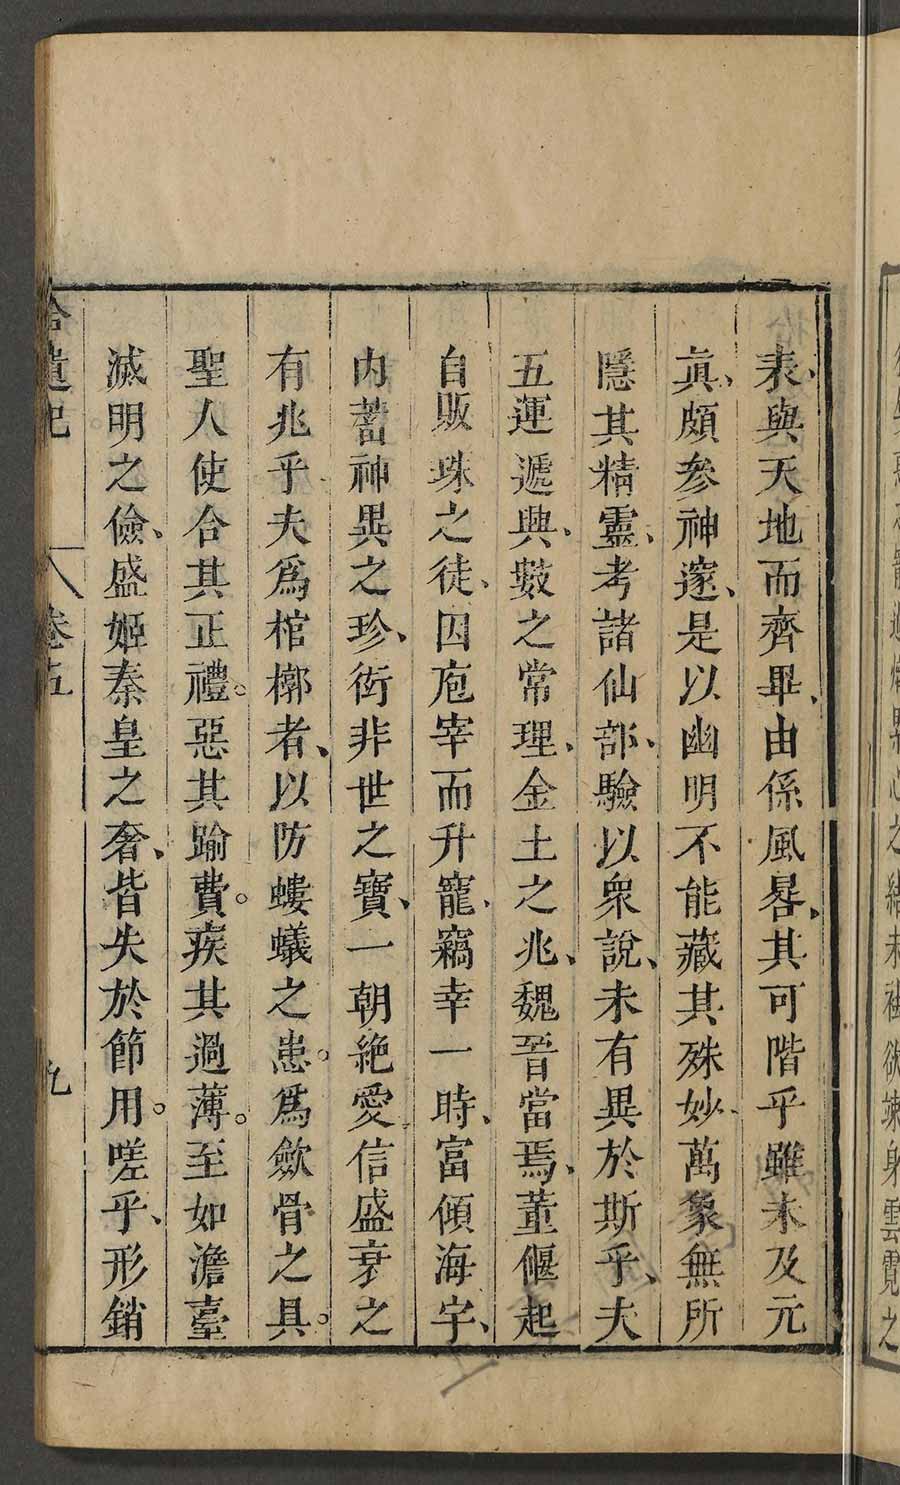 表、與天地而齊畢、由係風晷、其可階乎雖未及元
真、頗參神邃、是以幽明不能藏其殊妙、萬象無所
隱其精靈、考諸仙部、驗以眾說、未有異於斯乎、夫
五運遞興、數之常理、金土之兆、魏晉當焉、董偃起
自販珠之徒、因庖宰而升寵、竊幸一時、富傾海宇、
內蓄神異之珍、衒非世之寶、一朝絕愛信盛衰之
有兆乎夫爲棺槨者、以防螻蟻之患。爲斂骨之具。
聖人使合其正禮。惡其踰費。疾其過薄。至如澹臺
滅明之儉、盛姬秦皇之奢、皆失於節用。嗟乎、形銷
拾遺記 卷五 九